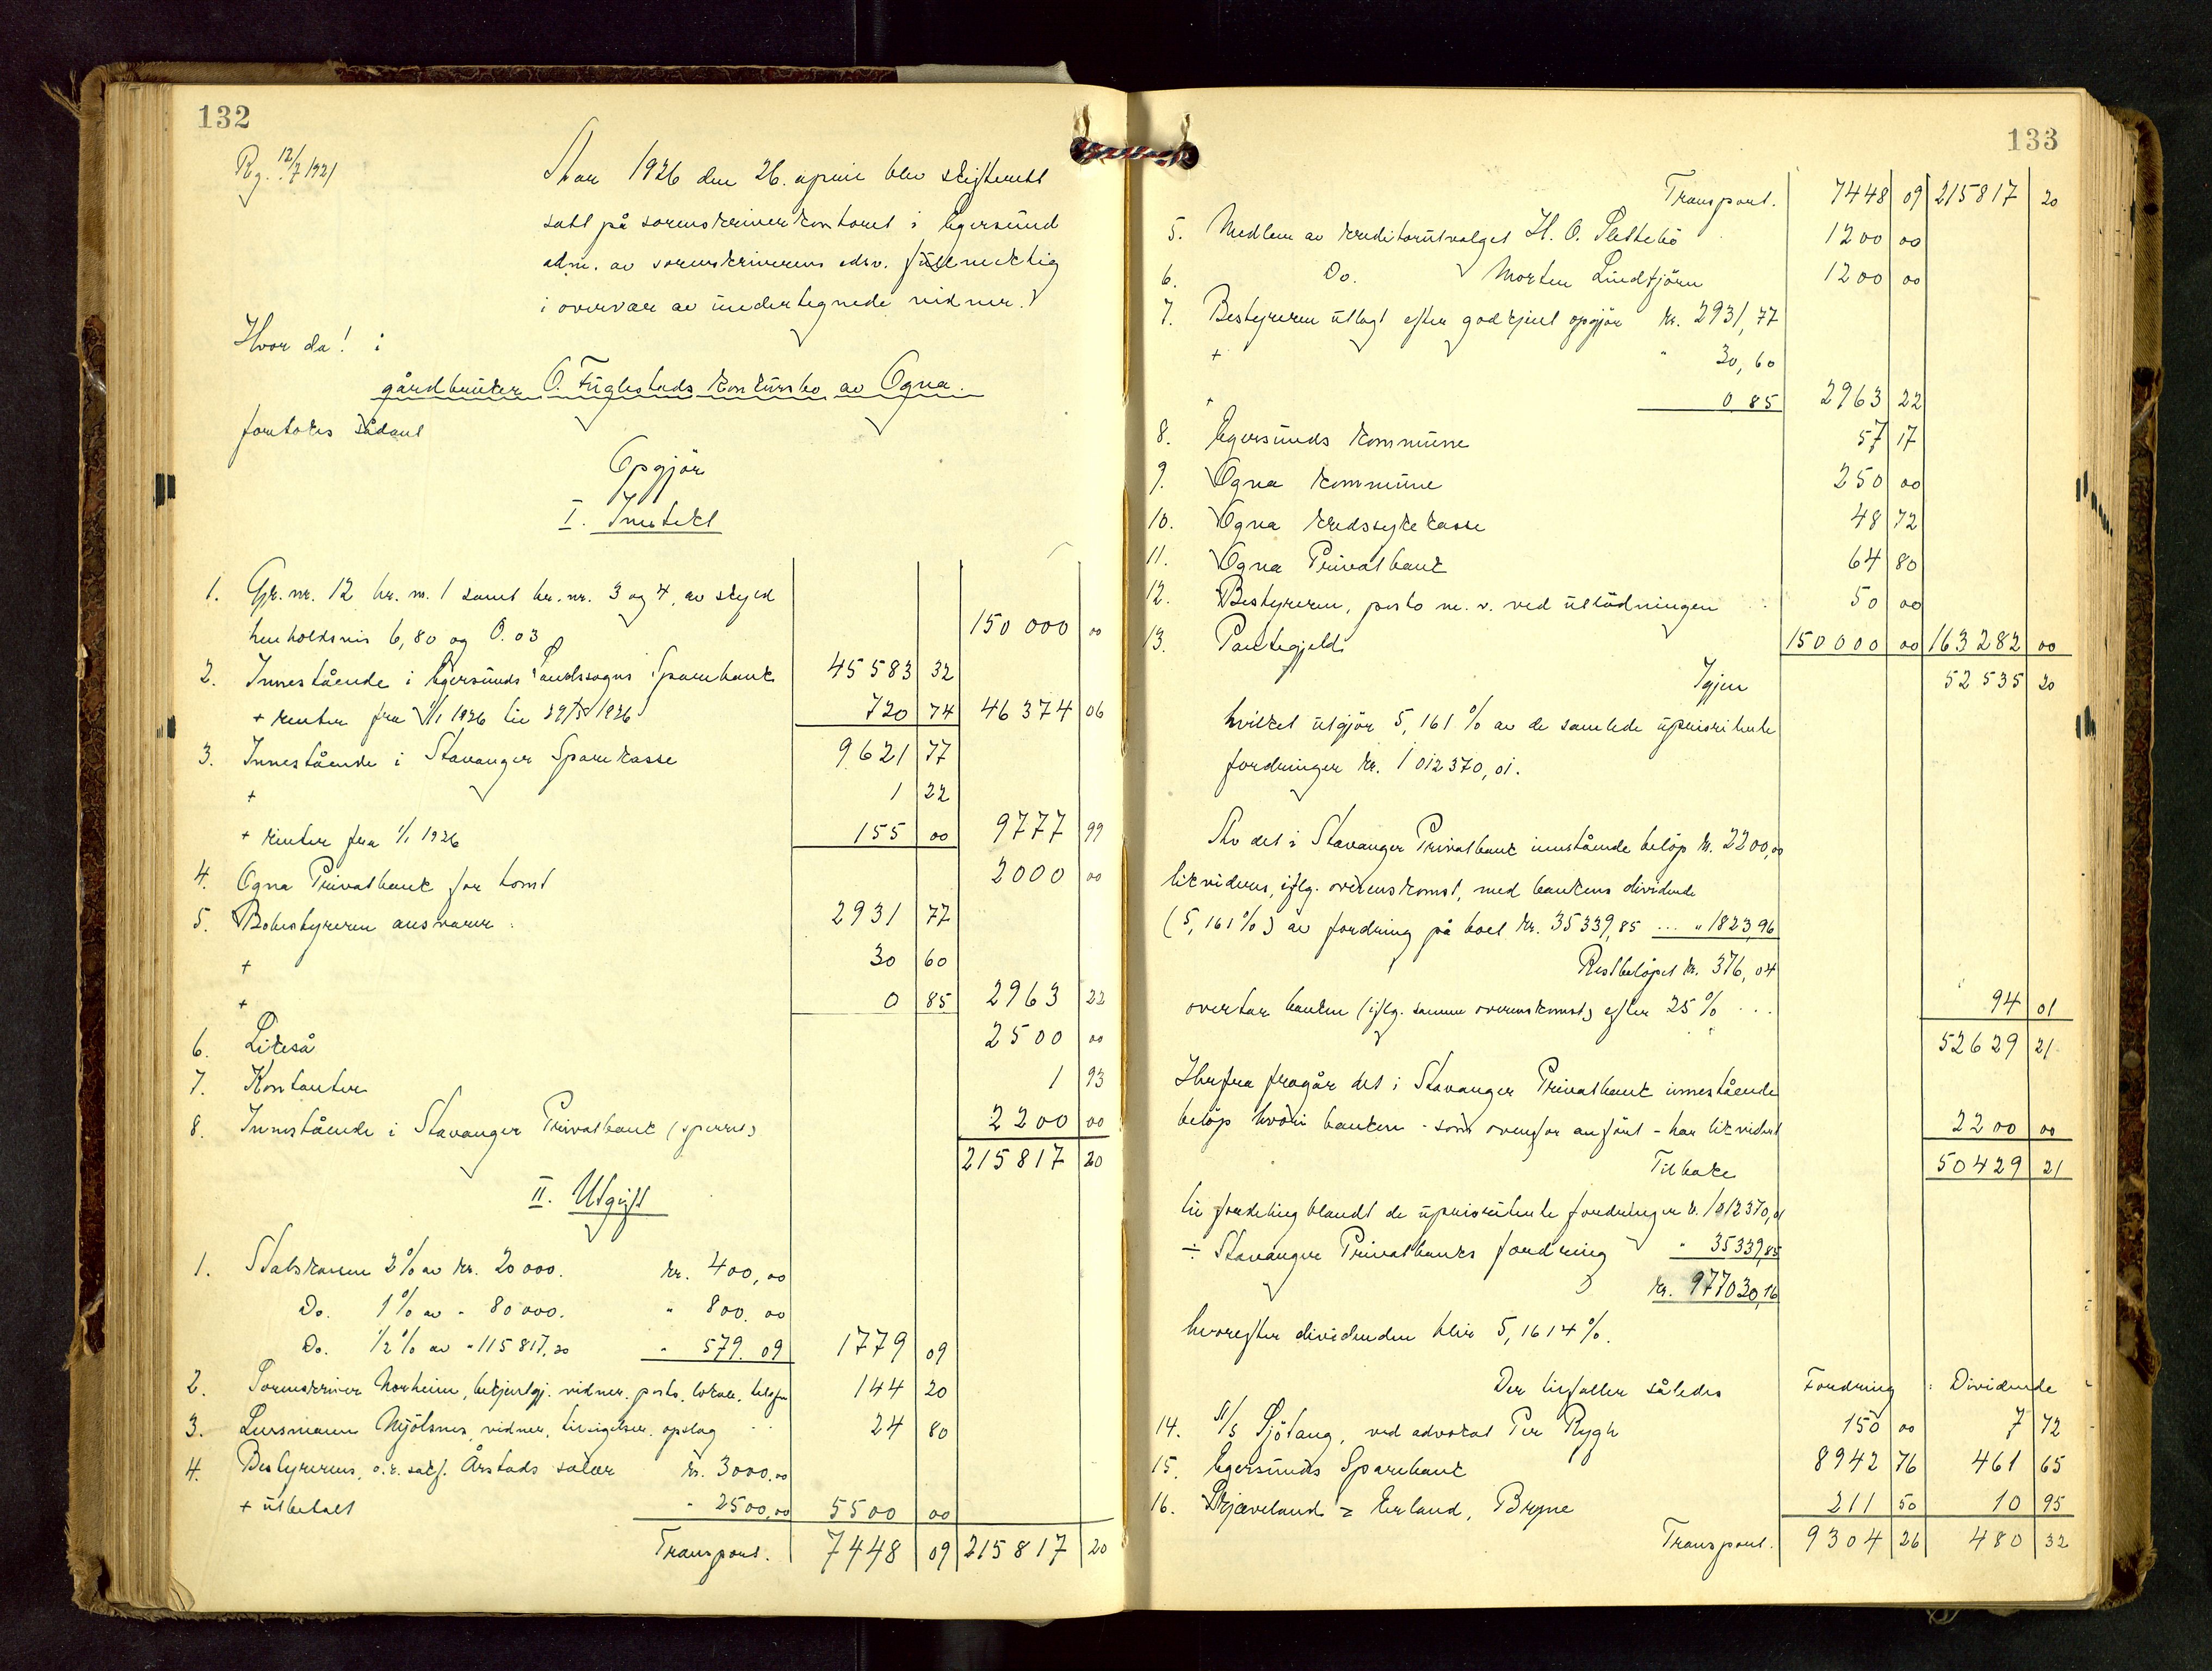 132
Rg. 12/7 1921
Aar 1926 den 26. april blev skifterett
satt på sorenskriverkontoret i Egersund
adm. av sorenskriverens edsv. fullmektig
i overvær av undertegnede vidner.
Hvor da! i
gårdbruker O. Fuglestads konkursbo av Ogna.
foretokes sådant
Opgjör
I. Inntekt
1. Gr. nr. 12 br. nr. 1 samt br. nr. 3 og 4, av skyld
henholdsvis 6,80 og 0.03 150 000 00
2. Innestående i Egersunds Landssogns Sparebank 45 583 32
+ renter fra 1/1 1926 til 1926 46 374 06
3. Innestående i Stavanger Sparekasse 9621 77
+ 1 22
+ renter fra 1/1 1926 155 00 9777 99
4. Ogna Privatbank for tomt 2000 00
5. Bobestyreren ansvarer 2931 77
+ 30 60
+ 0 85 2963 22
6. Likeså 2500 00
7. Kontanter 1 93
8. Innestående i Stavanger Privatbank (sperret) 2200 00
215817 20
II. Utgift
1. Statskassen 2% av kr. 20 000. kr. 400,00
Do. 1% av " 80 000. " 800.00
Do. 1/2% av " 115 817,20 " 579.09 1779 09
2. Sorenskriver Norheim, bekjentgj. vidner. porto. lokale. telefon 144 20
3. Lensmann Mjölsnes, vidner, tilsigelser, opslag 24 80
4. Bestyrerens, o.r. sakf. Årstads salær kr. 3000.00
+ utbetalt " 2500,00 5500 00
Transport. 7448 09 215817 20
133
Transport. 7448 09 215817 20
5. Medlem av kreditorutvalget H. O. Slettebö 1200 00
6. Do. Morten Lindtjörn 1200 00
7. Bestyreren utlagt efter godkjent opgjör kr. 2931,77
+ " 30,60
+ 0 85 2963 22
8. Egersunds kommune 57 17
9. Ogna kommune 250 00
10. Ogna kredssykekasse 48 72
11. Ogna Privatbank 64 80
12. Bestyreren, porto m. v. ved utlodningen 50 00
13. Pantegjeld 150000 00 163282 00
Igjen 52535 20
hvilket utgjör 5,161% av de samlede uprioriterte
fordringer kr. 1 012 370,01.
Av det i Stavanger Privatbank innstående belöp kr. 2200,00
likvideres, iflg. overenskomst, med bankens dividende
(5,161%) av fordring på boet kr. 35339,85 ... " 1823,96
Restbelöpet kr. 376,04
overtar banken (iflg. samme overenskomst) efter 25% ... 94 01
52629 21
Herfra fragår det i Stavanger Privatbank innestående
belöp hvori banken - som ovenfor anfört - har likvidert 2200 00
Tilbake 50429 21
til fordeling blandt de uprioriterte fordringer kr. 1012370,01
÷ Stavanger Privatbanks fordring " 35339,85
kr. 977030,16
hvorefter dividenden blir 5,1614%.
Der tilfaller således Fordring Dividende
14. A/S Sjötang, ved advokat Per Rygh 150 00 7 72
15. Egersunds Sparebank 8942 76 461 65
16. Skjæveland & Erland, Bryne 211 50 10 95
Transport. 9304 26 480 32